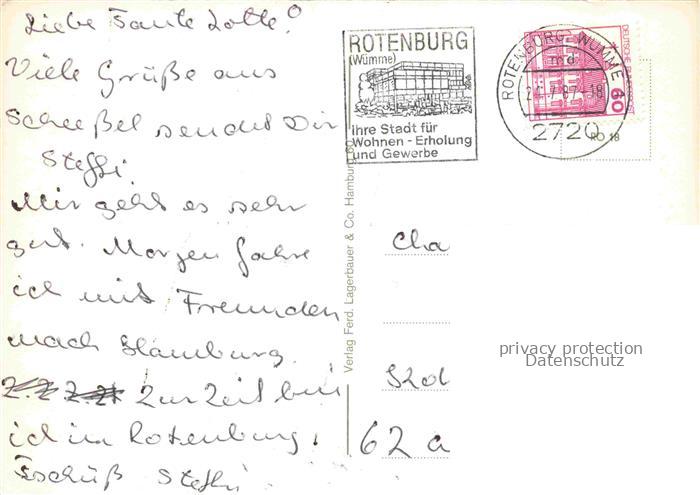 Liebe Tante Lotte!
Viele Grüße aus
Scheeßel sendet Dir
Steffi
Mir geht es sehr
gut. Morgen fahre
ich mit Freunden
nach Hamburg.
Zur Zeit bin
ich in Rotenburg.
Tschüß Steffi
Verlag Ferd. Lagerbauer & Co. Hamburg
ROTENBURG
(Wümme)
Ihre Stadt für
Wohnen - Erholung
und Gewerbe
ROTENBURG, WÜMME
md
87-18
2720
DEUTSCHE BUNDESPOST
60
RO 18
Cha
62 a
privacy protection
Datenschutz